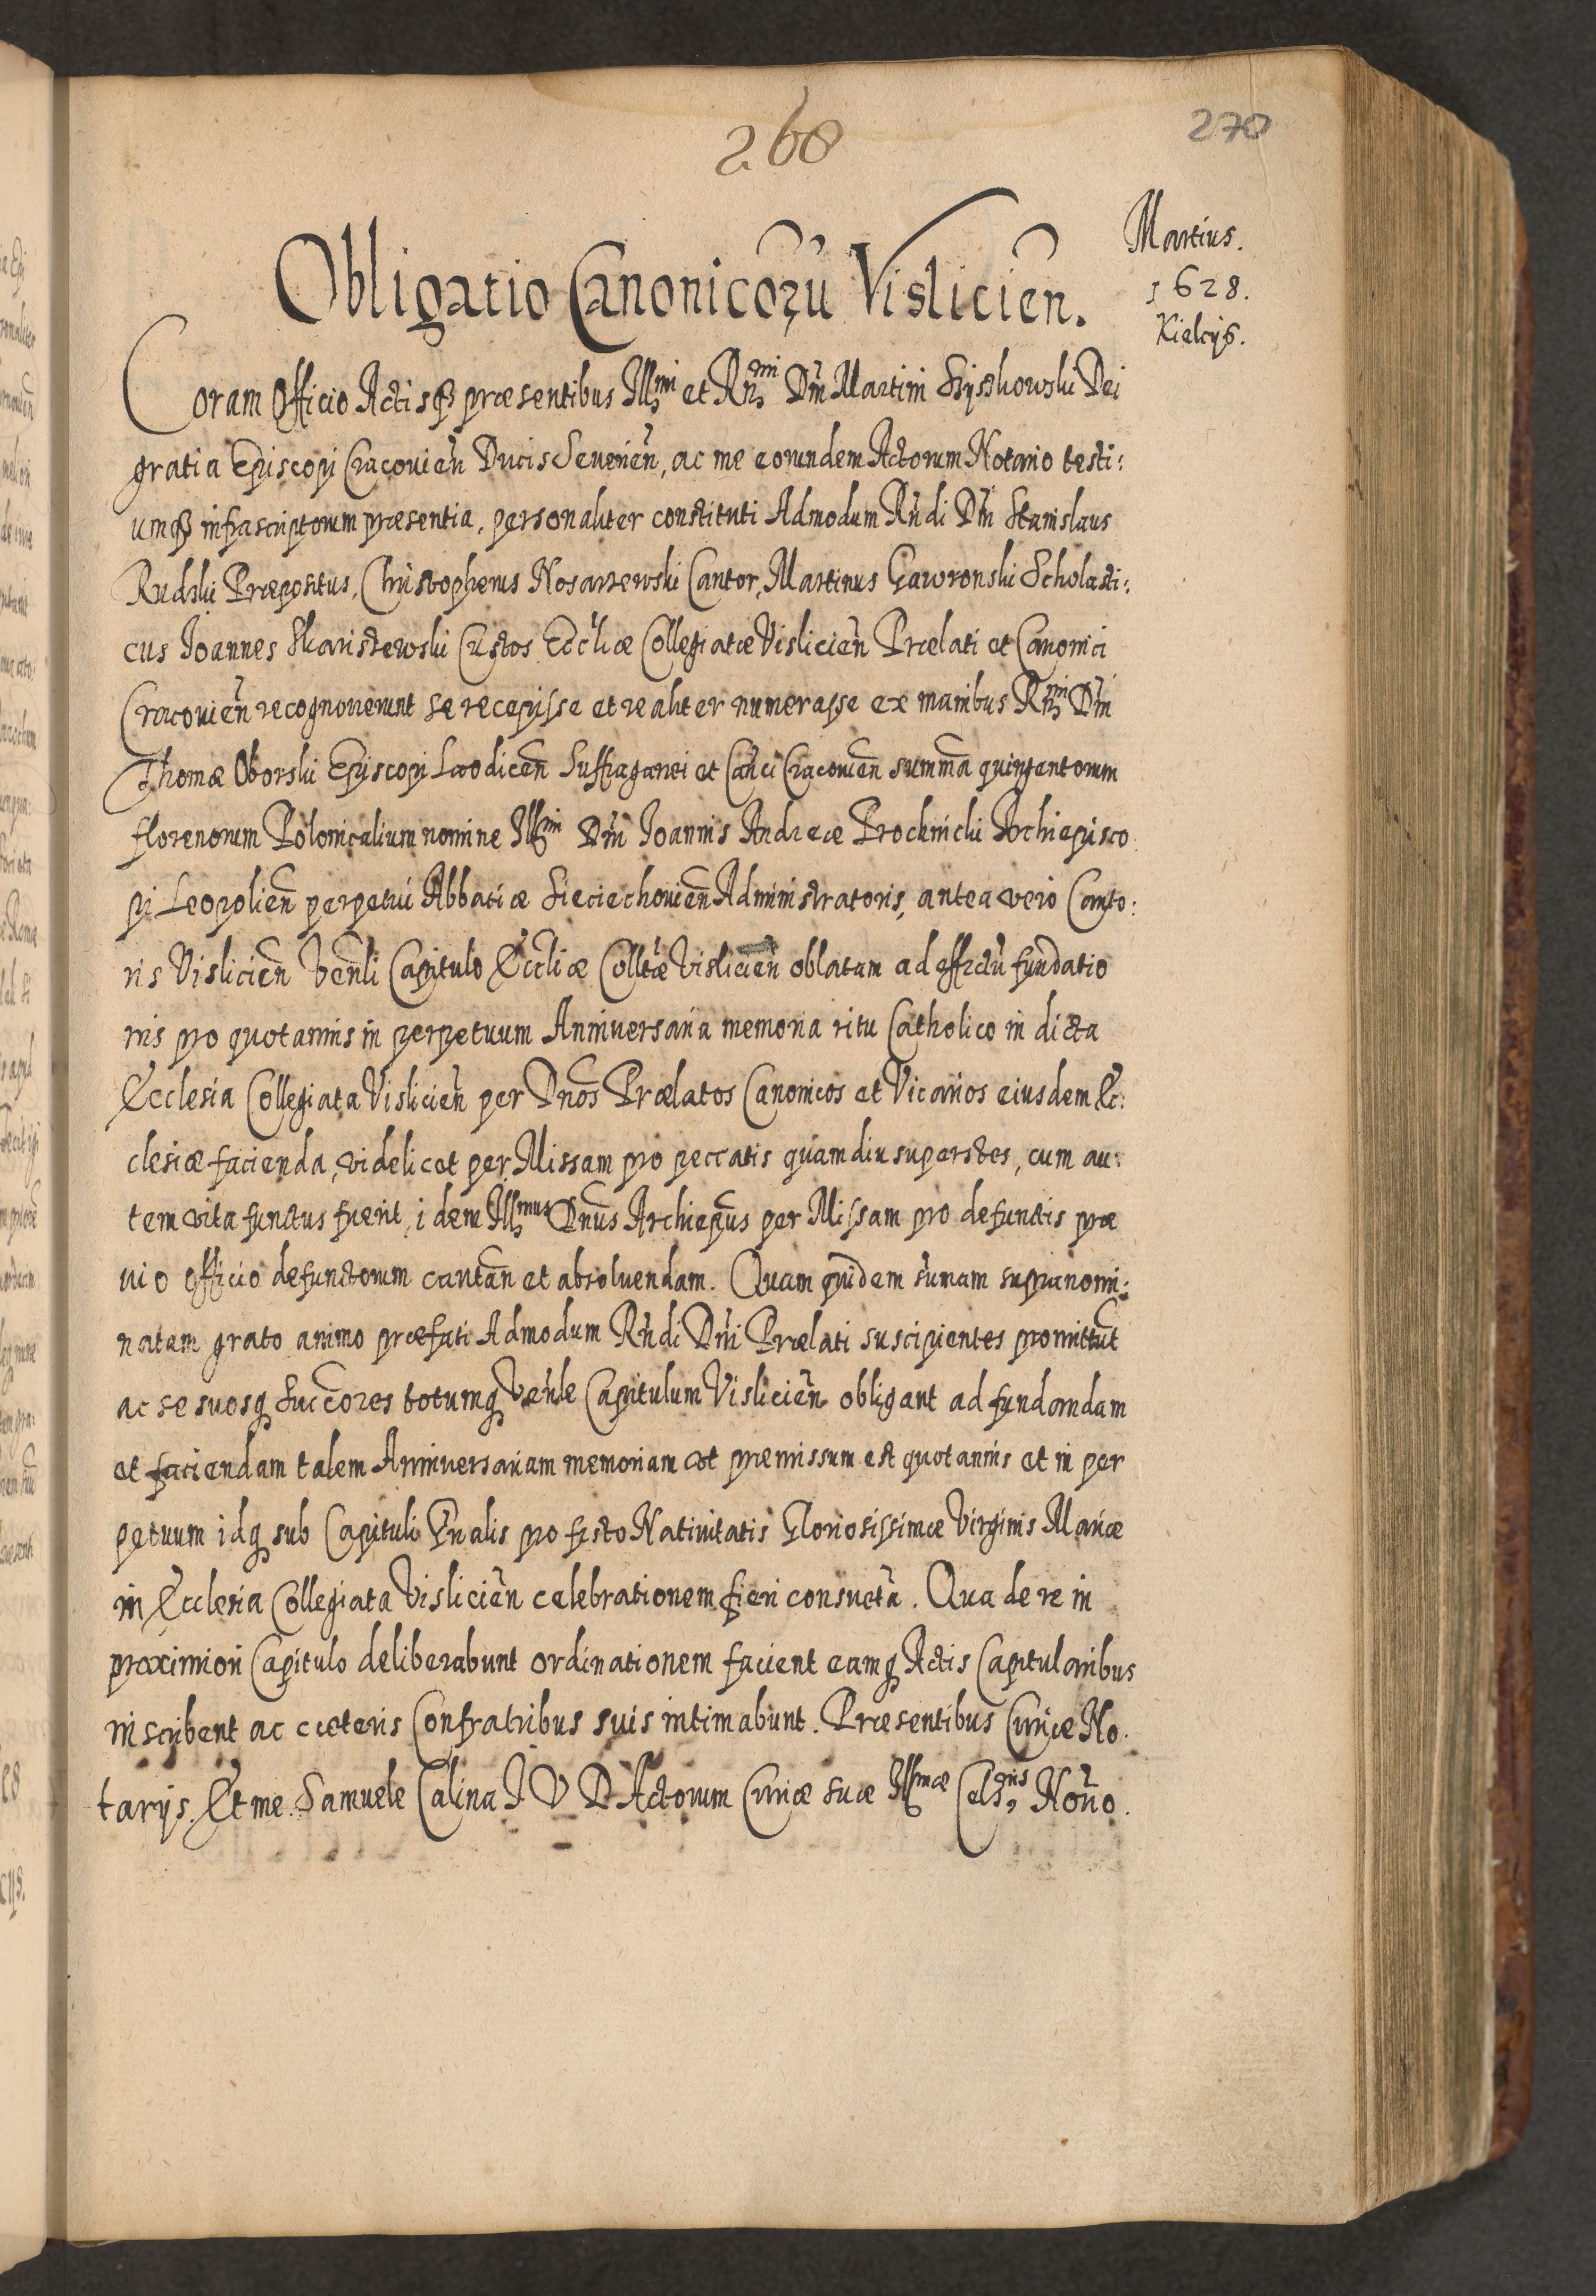 268
270
Martius.
1628.
Kielcijs.
Obligatio Canonicorũ Vislicien̄.
Coram Officio Actisq̃ præsentibus Illmi et Rmi Dñi Martini Szyszkowski Dei
gratia Episcopi Cracovień Ducis Severień, ac me eorundem Actorum Notario testi:
umq̃ infrascriptorum præsentia, personaliter constituti Admodum Rñdi Dñi Stanislaus
Rudski Præpositus, Christopherus Nosarzewski Cantor, Martinus Gawronski Scholasti:
cus Joannes Skaristewski Custos Eccl̃iæ Collegiatæ Vislicień Prælati et Canonici
Cracovień recognoverunt se recepisse et realiter numerasse ex manibus Rmi Dñi
Thomæ Oborski Episcopi Laodiceñ Suffraganei et Cañci Cracovień summã quingentorum
florenorum Polonicalium nomine Illmi Dñi Joannis Andreæ Prochnicki Archiepisco
pi Leopolień perpetui Abbatiæ Sieciechovień Administratoris, antea vero Canto:
ris Vislicień Veñli Capitulo Eccliæ Colltæ Vislicień oblatam ad effectũ fundatio
nis pro quotannis in perpetuum Anniversaria memoria ritu Catholico in dicta
Ecclesia Collegiata Vislicień per Dños Prælatos Canonicos et Vicarios eiusdem Ec:
clesiæ facienda, videlicet per Missam pro peccatis quamdiu superstes, cum au:
tem vita functus fuerit, idem Illmus Dñus Archiepũs per Missam pro defunctis præ
vio officio defunctorum cantañ et absolvendam. Quam quidem sum̃am supranomi:
natam grato animo præfati Admodum Rñdi Dñi Prælati suscipientes promittũt
ac se suosq Succ̃ores totumq Veñle Capitulum Vislicień obligant ad fundandam
et faciendam talem Anniversariam memoriam ut præmissum est quotannis et in per
petuum idq sub Capituli Gñalis pro festo Nativitatis Gloriosissimæ Virginis Mariæ
in Ecclesia Collegiata Vislicień celebrationem fieri consuetã. Qua de re in
proximiori Capitulo deliberabunt ordinationem facient eamq Actis Capitularibus
inscribent ac cæteris Confratribus suis intimabunt. Præsentibus Curiæ No.
tarijs. Et me Samuele Calina J V D Actorum Curiæ suæ Illmæ Celsnis Notño.